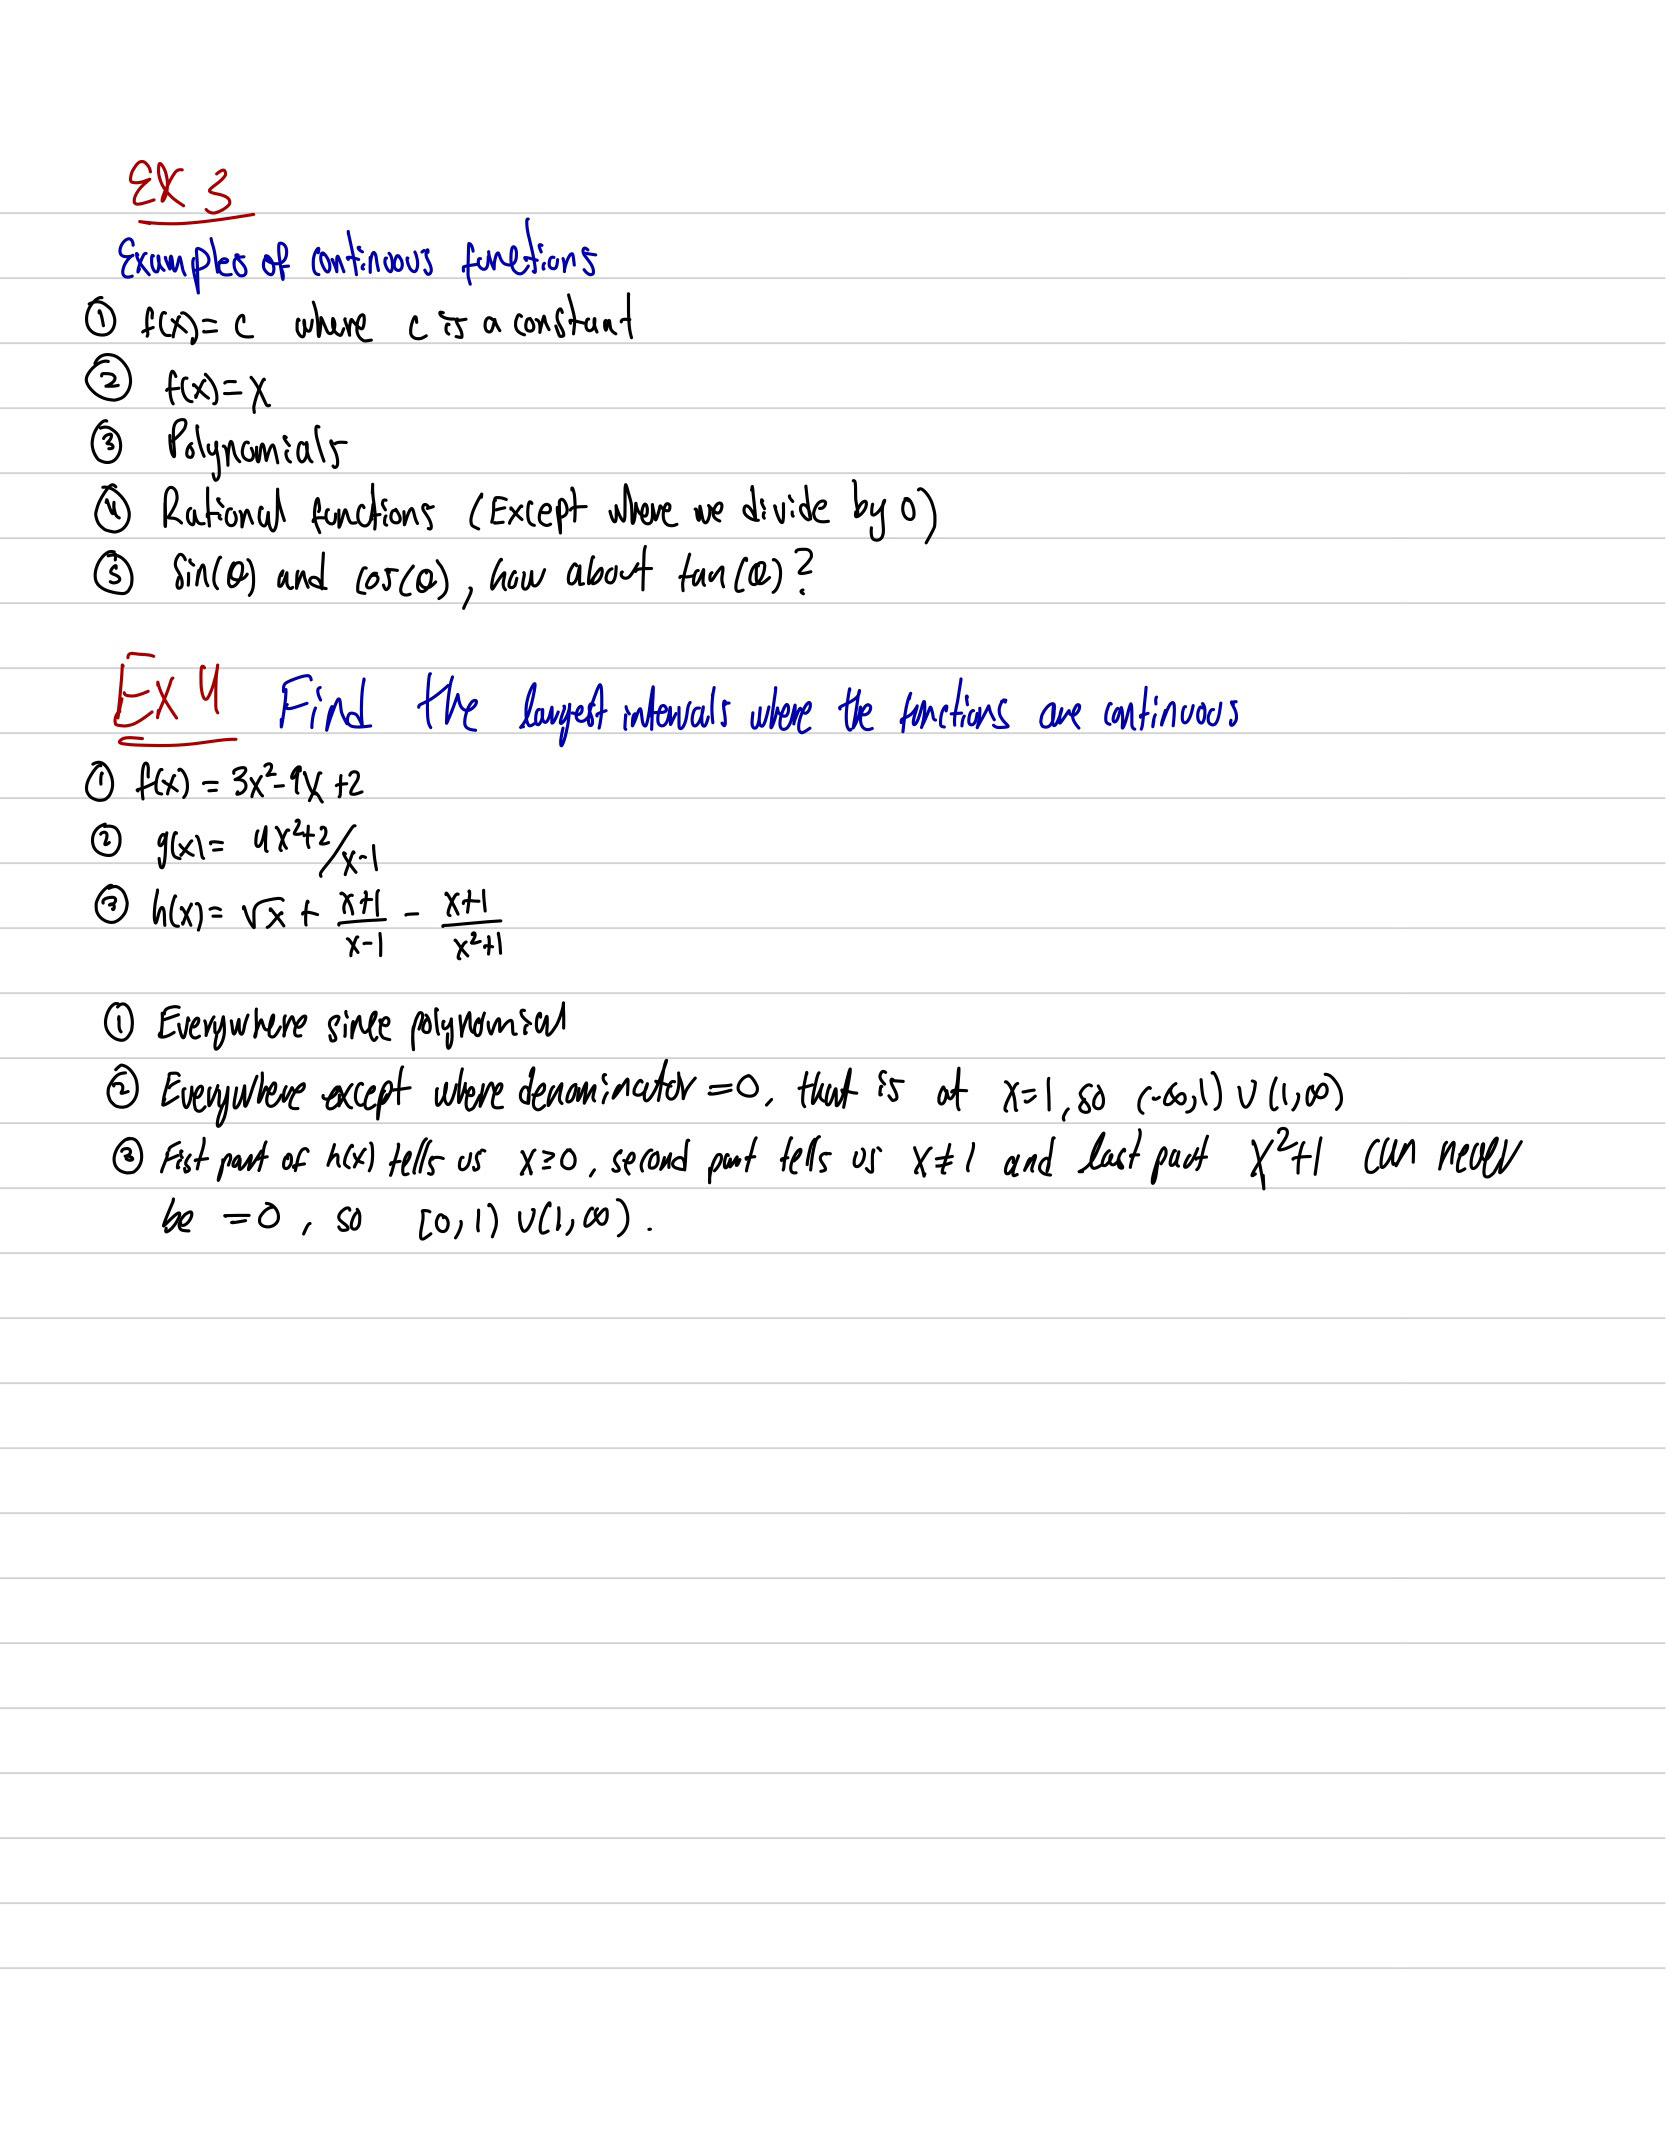 EX 3
Examples of continuous functions
① f(x) = c where c is a constant
② f(x) = x
③ Polynomials
④ Rational functions (Except where we divide by 0)
⑤ Sin(θ) and cos(θ), how about tan(θ)?
Ex 4 Find the largest intervals where the functions are continuous
① f(x) = 3x²-9x+2
② g(x) = 4x²+2/x-1
③ h(x) = √x + (x+1)/(x-1) - (x+1)/(x²+1)
① Everywhere since polynomial
② Everywhere except where denominator = 0, that is at x=1, so (-∞,1) ∪ (1,∞)
③ First part of h(x) tells us x≥0, second part tells us x≠1 and last part x²+1 can never
be =0, so [0,1) ∪ (1,∞).